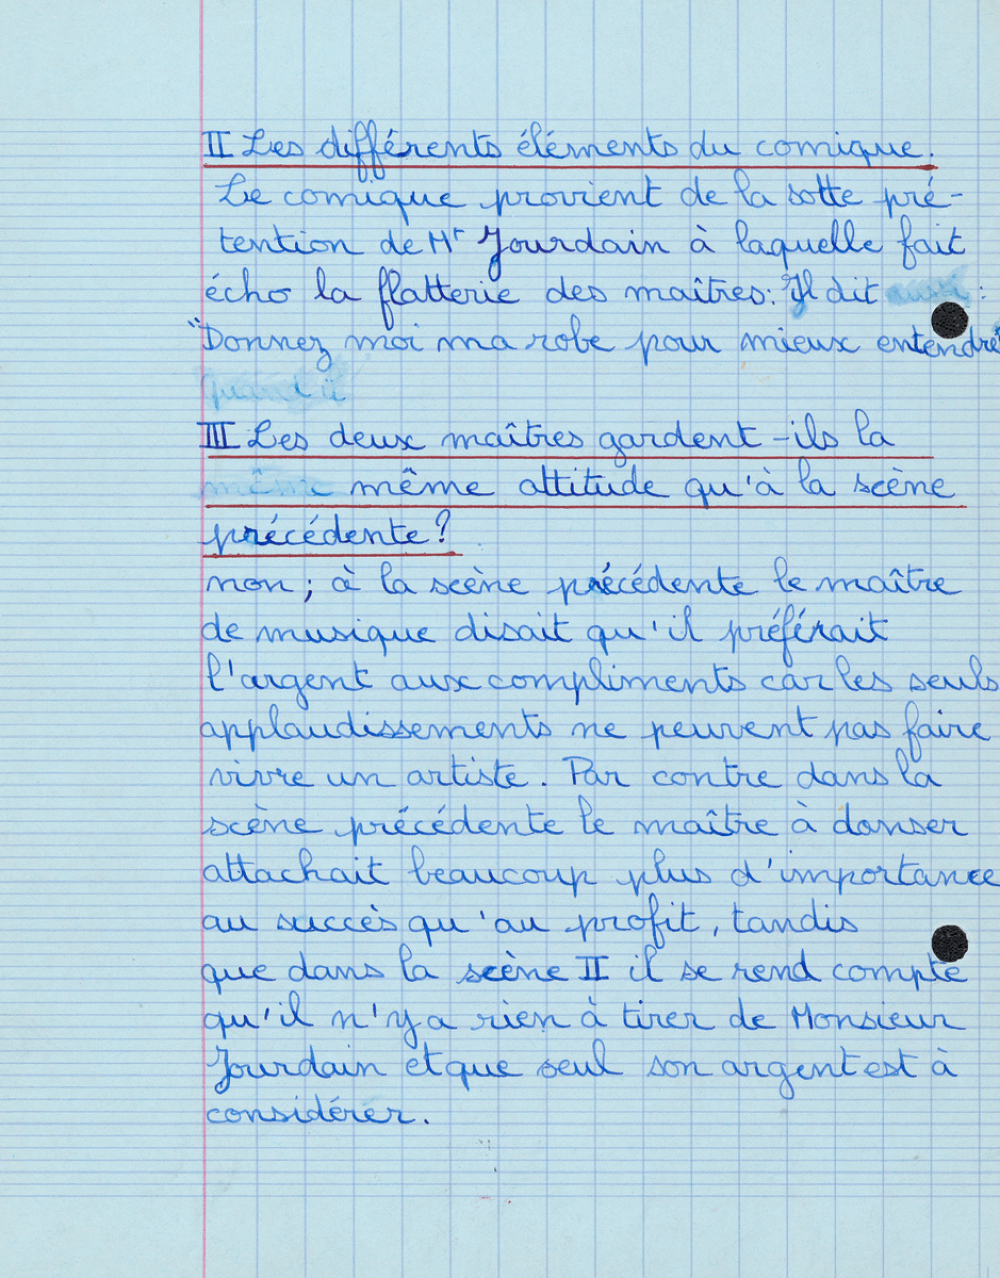 II Les différents éléments du comique.
Le comique provient de la sotte pré-
tention de Mr Jourdain à laquelle fait
écho la flatterie des maîtres: Il dit :
"Donnez moi ma robe pour mieux entendre"
Quand il
III Les deux maîtres gardent-ils la
même même attitude qu'à la scène
précédente?
non; à la scène précédente le maître
de musique disait qu'il préférait
l'argent aux compliments car les seuls
applaudissements ne peuvent pas faire
vivre un artiste. Par contre dans la
scène précédente le maître à danser
attachait beaucoup plus d'importance
au succès qu'au profit, tandis
que dans la scène II il se rend compte
qu'il n'y a rien à tirer de Monsieur
Jourdain et que seul son argent est à
considérer.